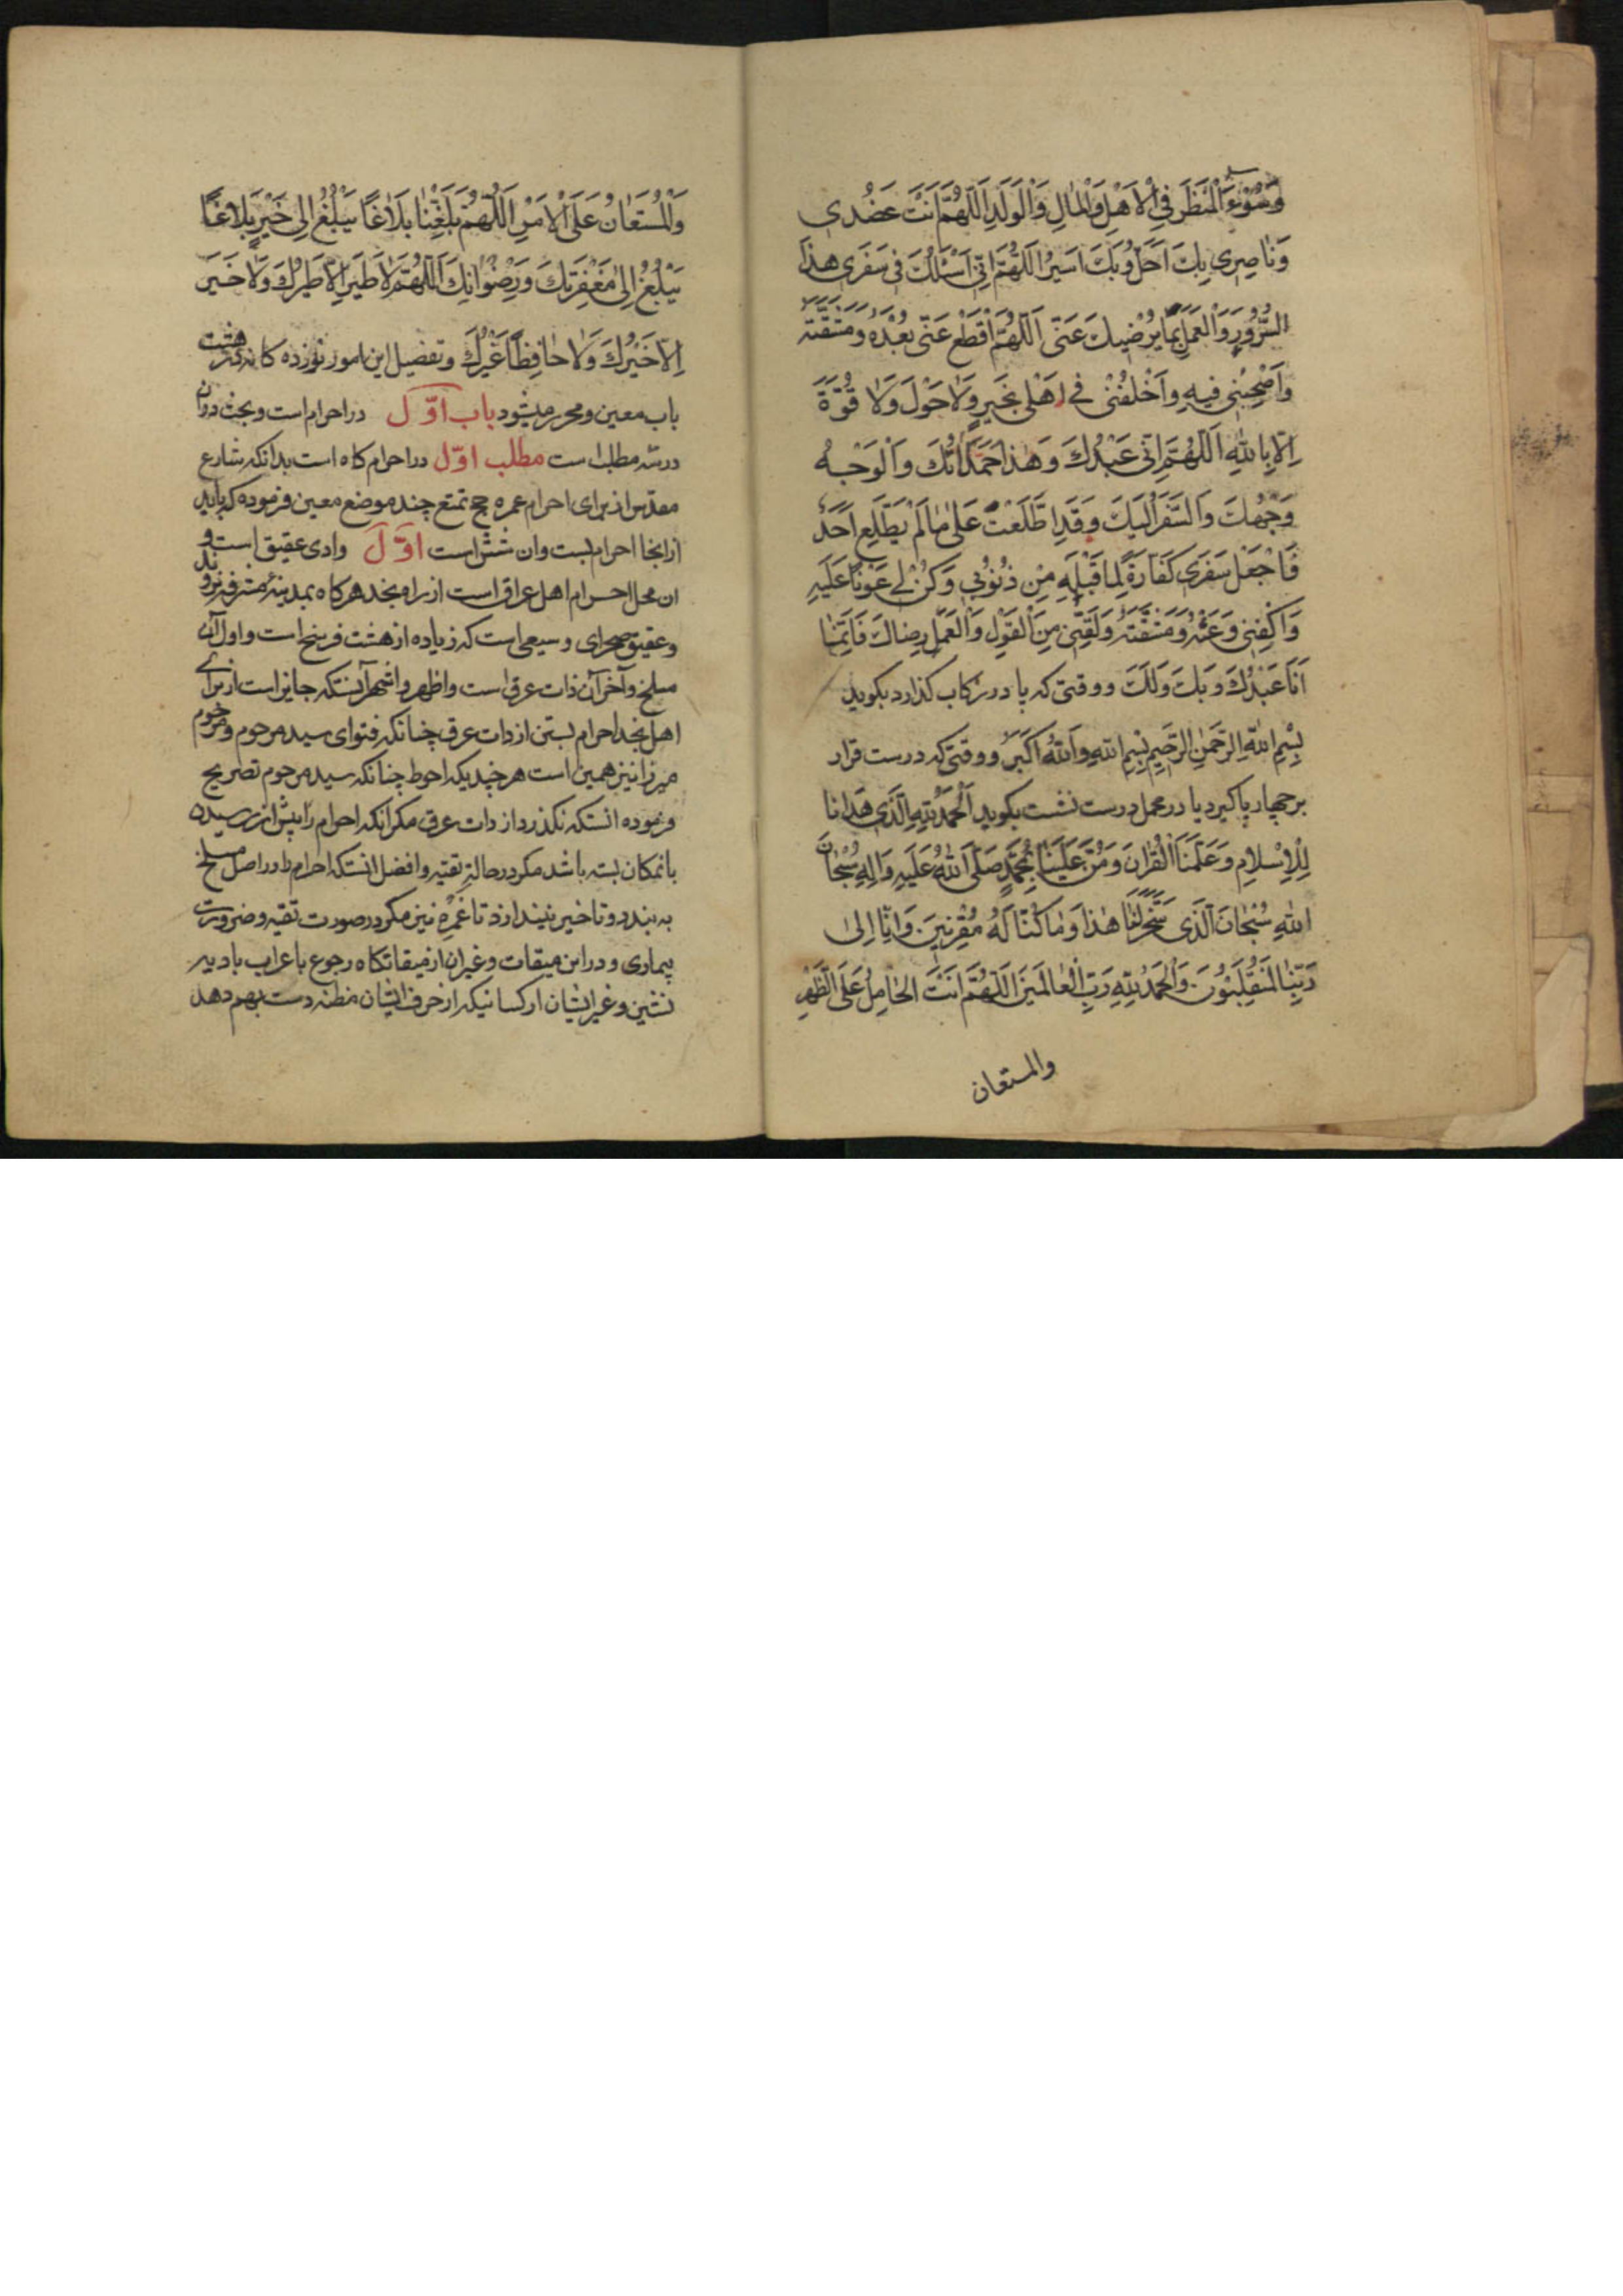 وَسُوٓءِ الْمَنْظَرِ فِي الْاَهْلِ وَالْمَالِ وَالْوَلَدِ اَللّٰهُمَّ اَنْتَ عَضُدى
وَنَاصِرِى بِكَ اَحُلُّ وَبِكَ اَسيرُ اَللّٰهُمَّ اِنّى اَسْئَلُكَ فى سَفَرى هٰذَا
السُّرُورَ وَالْعَمَلَ بِمٰا يُرْضيكَ عَنّى اَللّٰهُمَّ اقْطَعْ عَنّى بُعْدَهُ وَمَشَقَّتَهُ
وَاَصْحِبْنى فيهِ وَاخْلُفْنى فى اَهْلى بِخَيْرٍ وَلاٰ حَوْلَ وَلاٰ قُوَّةَ
اِلاّٰ بِاللّٰهِ اَللّٰهُمَّ اِنّى عَبْدُكَ وَهٰذٰا حُمْلٰانُكَ وَالْوَجْهُ
وَجْهُكَ وَالسَّفَرُ اِلَيْكَ وَقَدِ اطَّلَعْتَ عَلىٰ مٰا لَمْ يَطَّلِعْ اَحَدٌ
فَاجْعَلْ سَفَرى كَفّٰارَةً لِمٰا قَبْلَهُ مِنْ ذُنُوبى وَكُنْ لى عَوْنًا عَلَيْهِ
وَاكْفِنى وَعَثَهُ وَمَشَقَّتَهُ وَلَقِّنى مِنَ الْقَوْلِ وَالْعَمَلِ رِضٰاكَ فَاِنَّمٰا
اَنَا عَبْدُكَ وَبِكَ وَلَكَ ووقتى كه پا در ركاب كذارد بكويد
بِسْمِ اللّٰهِ الرَّحْمٰنِ الرَّحيمِ بِسْمِ اللّٰهِ وَاللّٰهُ اَكْبَرُ ووقتى كه درست قرار
بر چهار پا كيرد يا در محمل درست نشست بكويد اَلْحَمْدُ لِلّٰهِ الَّذى هَدٰانا
لِلْاِسْلامِ وَعَلَّمَنَا الْقُرْانَ وَمَنَّ عَلَيْنٰا بِمُحَمَّدٍ صَلَّى اللّٰهُ عَلَيْهِ وَاٰلِهِ سُبْحٰانَ
اللّٰهِ سُبْحٰانَ الَّذى سَخَّرَ لَنٰا هٰذٰا وَمٰا كُنّٰا لَهُ مُقْرِنينَ وَاِنّٰا اِلىٰ
رَبِّنٰا لَمُنْقَلِبُونَ وَالْحَمْدُ لِلّٰهِ رَبِّ الْعٰالَمينَ اَللّٰهُمَّ اَنْتَ الحٰامِلُ عَلَى الظَّهْرِ
والمستعان
وَالْمُسْتَعٰانُ عَلَى الْاَمْرِ اَللّٰهُمَّ بَلِّغْنٰا بَلٰاغًا يَبْلُغُ اِلى خَيْرٍ بَلٰاغًا
يَبْلُغُ اِلىٰ مَغْفِرَتِكَ وَرِضْوٰانِكَ اَللّٰهُمَّ لاٰ طَيْرَ اِلاّٰ طَيْرُكَ وَلاٰ خَيْرَ
اِلاّٰ خَيْرُكَ وَلاٰ حٰافِظَ غَيْرُكَ وتفصيل اين امور نوزده كانه در هشت
باب معين ومحرر ميشود باب اوّل در احرام است وبحث در ان
در سه مطلب است مطلب اوّل در احرام كاه است بدانكه شارع
مقدس از براى احرام عمره حج تمتع چند موضع معين فرموده كه بايد
از انجا احرام بست وان شش است اوّل وادى عقيق است و
ان محل احرام اهل عراق است از راه نجد هركاه بمدينهٔ مشرفه نروند
وعقيق صحراى وسيعى است كه زياده از هشت فرسخ است واول آن
مسلخ وآخر آن ذات عرق است واظهر واشهر آنستكه جايز است از براى
اهل نجد احرام بستن از ذات عرق چنانكه فتواى سيد مرحوم ومرحوم
ميرزا نيز همين است هر چند يكه احوط چنانكه سيد مرحوم تصريح
فرموده انستكه نكذرد از ذات عرق مكر انكه احرام را پيش از رسيدن
بانمكان بسته باشد مكر در حالة تقيه وافضل انستكه احرام را در اصل مسلخ
به بندد وتاخير نيندازد تا غمره نيز مكر در صورت تقيه وضرورت
بيمارى ودر اين ميقات وغير ان از ميقاتكاه رجوع باعراب باديه
نشين وغير ايشان از كسانيكه از حرف ايشان مظنه دست بهم دهد